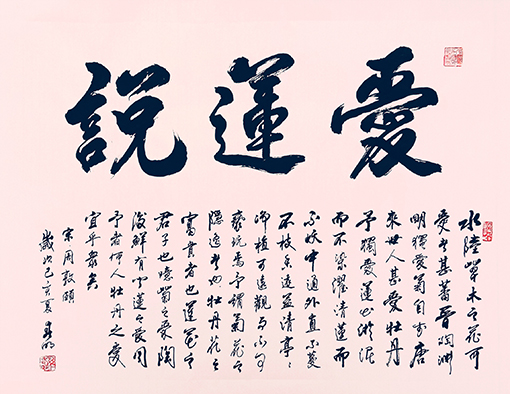 愛蓮說
水陸草木之花可
愛者甚蕃晉陶淵
明獨愛菊自李唐
來世人甚愛牡丹
予獨愛蓮出淤泥
而不染濯清蓮而
不妖中通外直不蔓
不枝香遠益清亭々
淨植可遠觀而不可
褻玩焉予謂菊花之
隱逸者也牡丹花之
富貴者也蓮花之
君子也噫菊之愛陶
後鮮有聞蓮之愛同
予者何人牡丹之愛
宜乎眾矣
宋周敦頤
歲次己亥夏